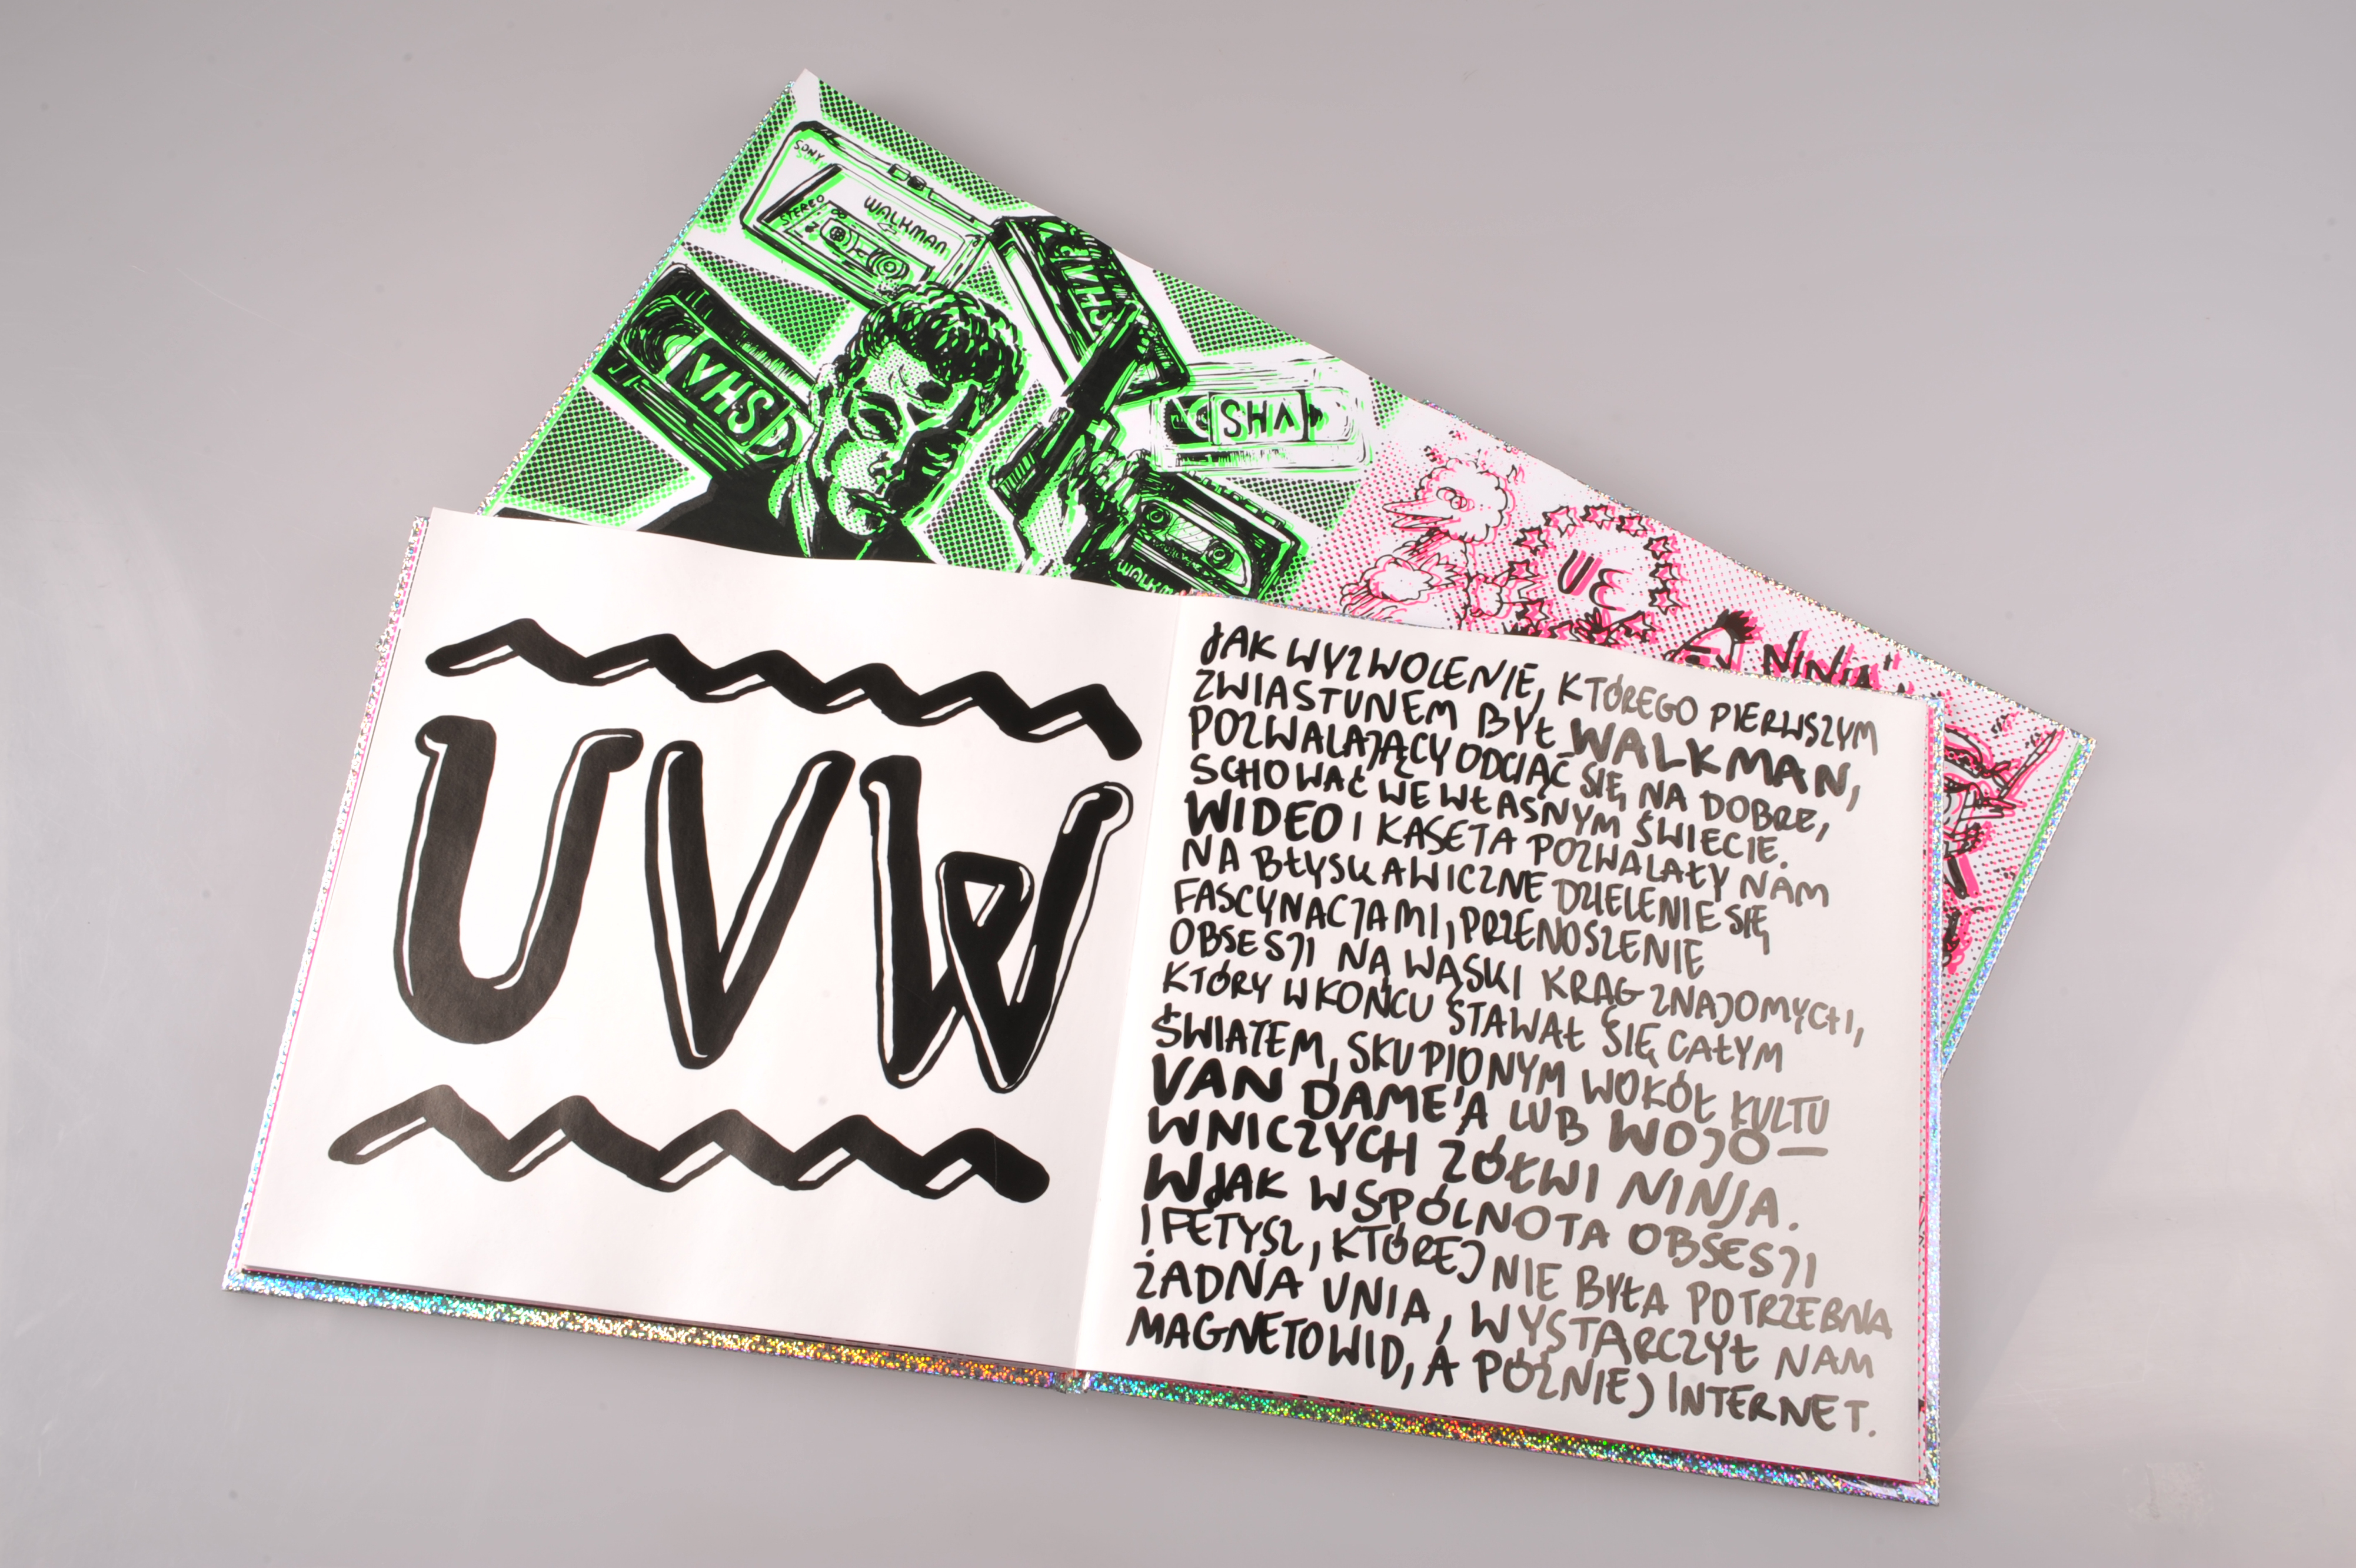 SONY
STEREO
WALKMAN
VHS
VHS
SHA
WALKM
UE
NINJA"
UVW
JAK WYZWOLENIE, KTÓREGO PIERWSZYM
ZWIASTUNEM BYŁ WALKMAN,
POZWALAJĄCY ODCIĄĆ SIĘ NA DOBRE,
SCHOWAĆ WE WŁASNYM ŚWIECIE.
WIDEO I KASETA POZWALAŁY NAM
NA BŁYSKAWICZNE DZIELENIE SIĘ
FASCYNACJAMI, PRZENOSZENIE
OBSESJI NA WĄSKI KRĄG ZNAJOMYCH,
KTÓRY W KOŃCU STAWAŁ SIĘ CAŁYM
ŚWIATEM, SKUPIONYM WOKÓŁ KULTU
VAN DAME'A LUB WOJO—
WNICZYCH ŻÓŁWI NINJA.
W JAK WSPÓLNOTA OBSESJI
I FETYSZ, KTÓREJ NIE BYŁA POTRZEBNA
ŻADNA UNIA, WYSTARCZYŁ NAM
MAGNETOWID, A PÓŹNIEJ INTERNET.